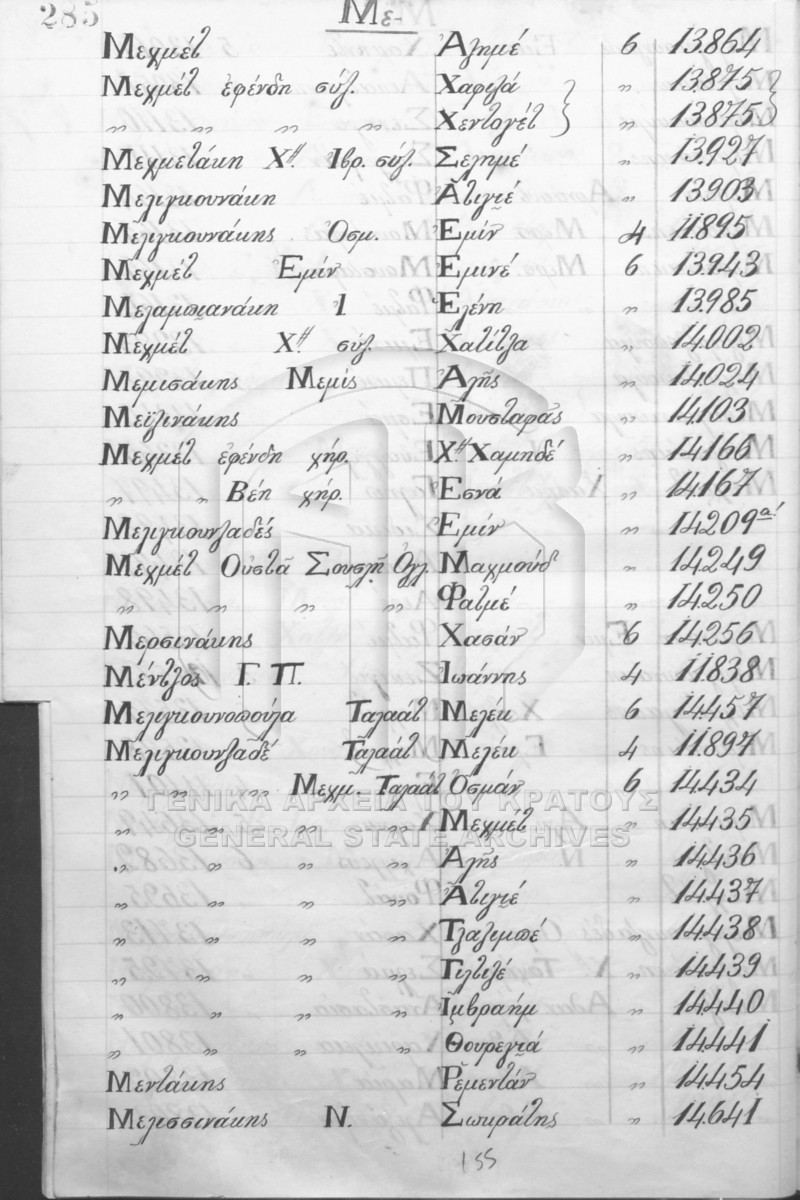 285
Με-
Μεχμέτ Ἀλημέ 6 13.864
Μεχμέτ ἐφένδη σύζ. Χαφιζά „ 13.875
„ „ „ „ Χεντογέτ „ 13.875
Μεχμετάκη Χῆ. Ἰβρ. σύζ. Σελημέ „ 13.927
Μελιγκουνάκη Ἀτιγιέ „ 13.903
Μελιγκουνάκης Ὀσμ. Ἐμίν 4 11.895
Μεχμέτ Ἐμίν Ἐμινέ 6 13.943
Μελαμπιανάκη Ι. Ἑλένη „ 13.985
Μεχμέτ Χῆ. σύζ. Χατίτζα „ 14.002
Μεμισάκης Μεμίς Ἀλῆς „ 14.024
Μεϊλινάκης Μουσταφᾶς „ 14.103
Μεχμέτ ἐφένδη χήρ. Χῆ. Χαμηδέ „ 14.166
„ „ Βέη χήρ. Ἐσνά „ 14.167
Μελιγκουνζαδές Ἐμίν „ 14.209α'
Μεχμέτ Οὐστᾶ Σουσλῆ Ὀγλ. Μαχμούδ „ 14.249
„ „ „ „ Φατμέ „ 14.250
Μερσινάκης Χασάν 6 14.256
Μέντζος Γ. Π. Ἰωάννης 4 11.838
Μελιγκουνοπούλα Ταλαάτ Μελέκ 6 14.457
Μελιγκουνζαδέ Ταλαάτ Μελέκ 4 11.897
„ „ „ „ Μεχμ. Ταλαάτ Ὀσμάν 6 14.434
„ „ „ „ Μεχμέτ „ 14.435
„ „ „ „ Ἀλῆς „ 14.436
„ „ „ „ Ἀτιγιέ „ 14.437
„ „ „ „ Τζαλιμπέ „ 14.438
„ „ „ „ Γιλτιζέ „ 14.439
„ „ „ „ Ἰμβραήμ „ 14.440
„ „ „ „ Θουρεγιά „ 14.441
Μεντάκης Ρεμεντάν „ 14.454
Μελισσινάκης Ν. Σωκράτης „ 14.641
155
ΓΕΝΙΚΑ ΑΡΧΕΙΑ ΤΟΥ ΚΡΑΤΟΥΣ
GENERAL STATE ARCHIVES